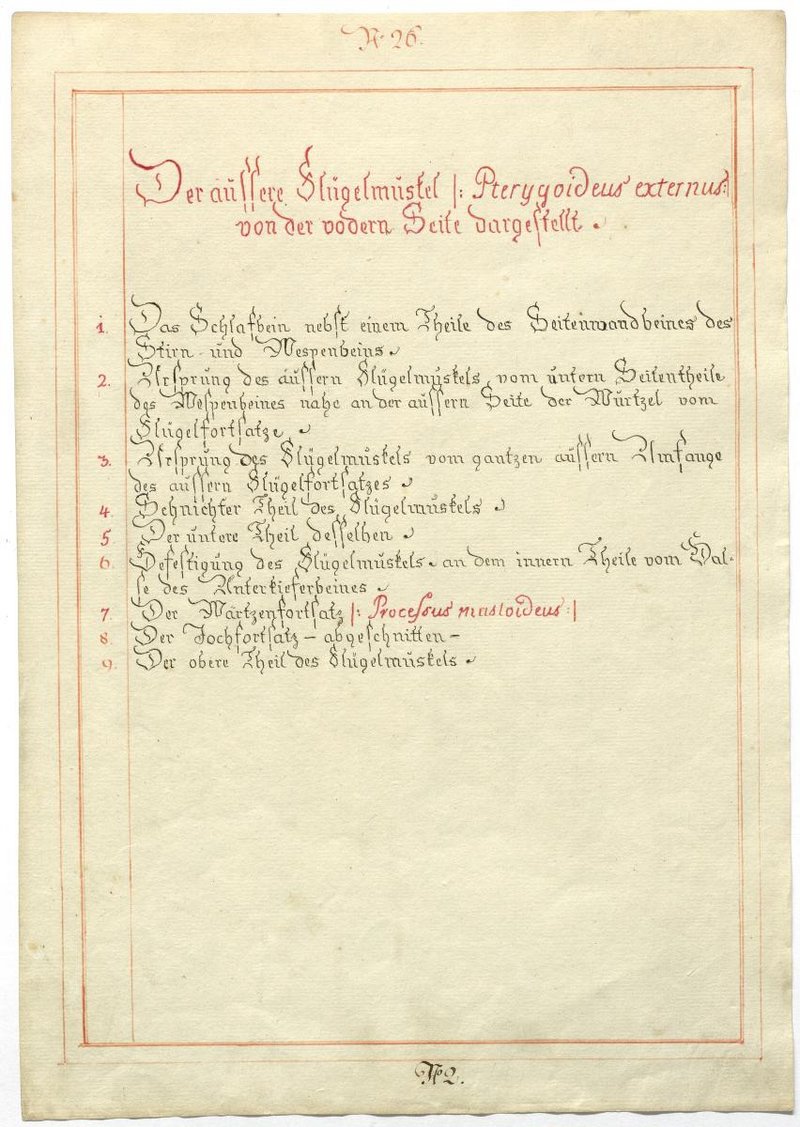 N. 26.
Der äussere Flügelmuskel |: Pterygoideus externus :|
von der vodern Seite dargestellt.
1. Das Schlafbein nebst einem Theile des Seitenwandbeines des
Stirn- und Wespenbeins.
2. Ursprung des äussern Flügelmuskels vom untern Seitentheile
des Wespenbeines nahe an der äussern Seite der Würtzel vom
Flügelfortsatze.
3. Ursprung des Flügelmuskels vom gantzen äussern Umfange
des äussern Flügelfortsatzes.
4. Sehnichter Theil des Flügelmuskels.
5. Der untere Theil desselben.
6. Befestigung des Flügelmuskels an dem innern Theile vom Hal-
se des Unterkieferbeines.
7. Der Wartzenfortsatz |: Processus mastoideus :|
8. Der Jochfortsatz – abgeschnitten –
9. Der obere Theil des Flügelmuskels.
No 2.